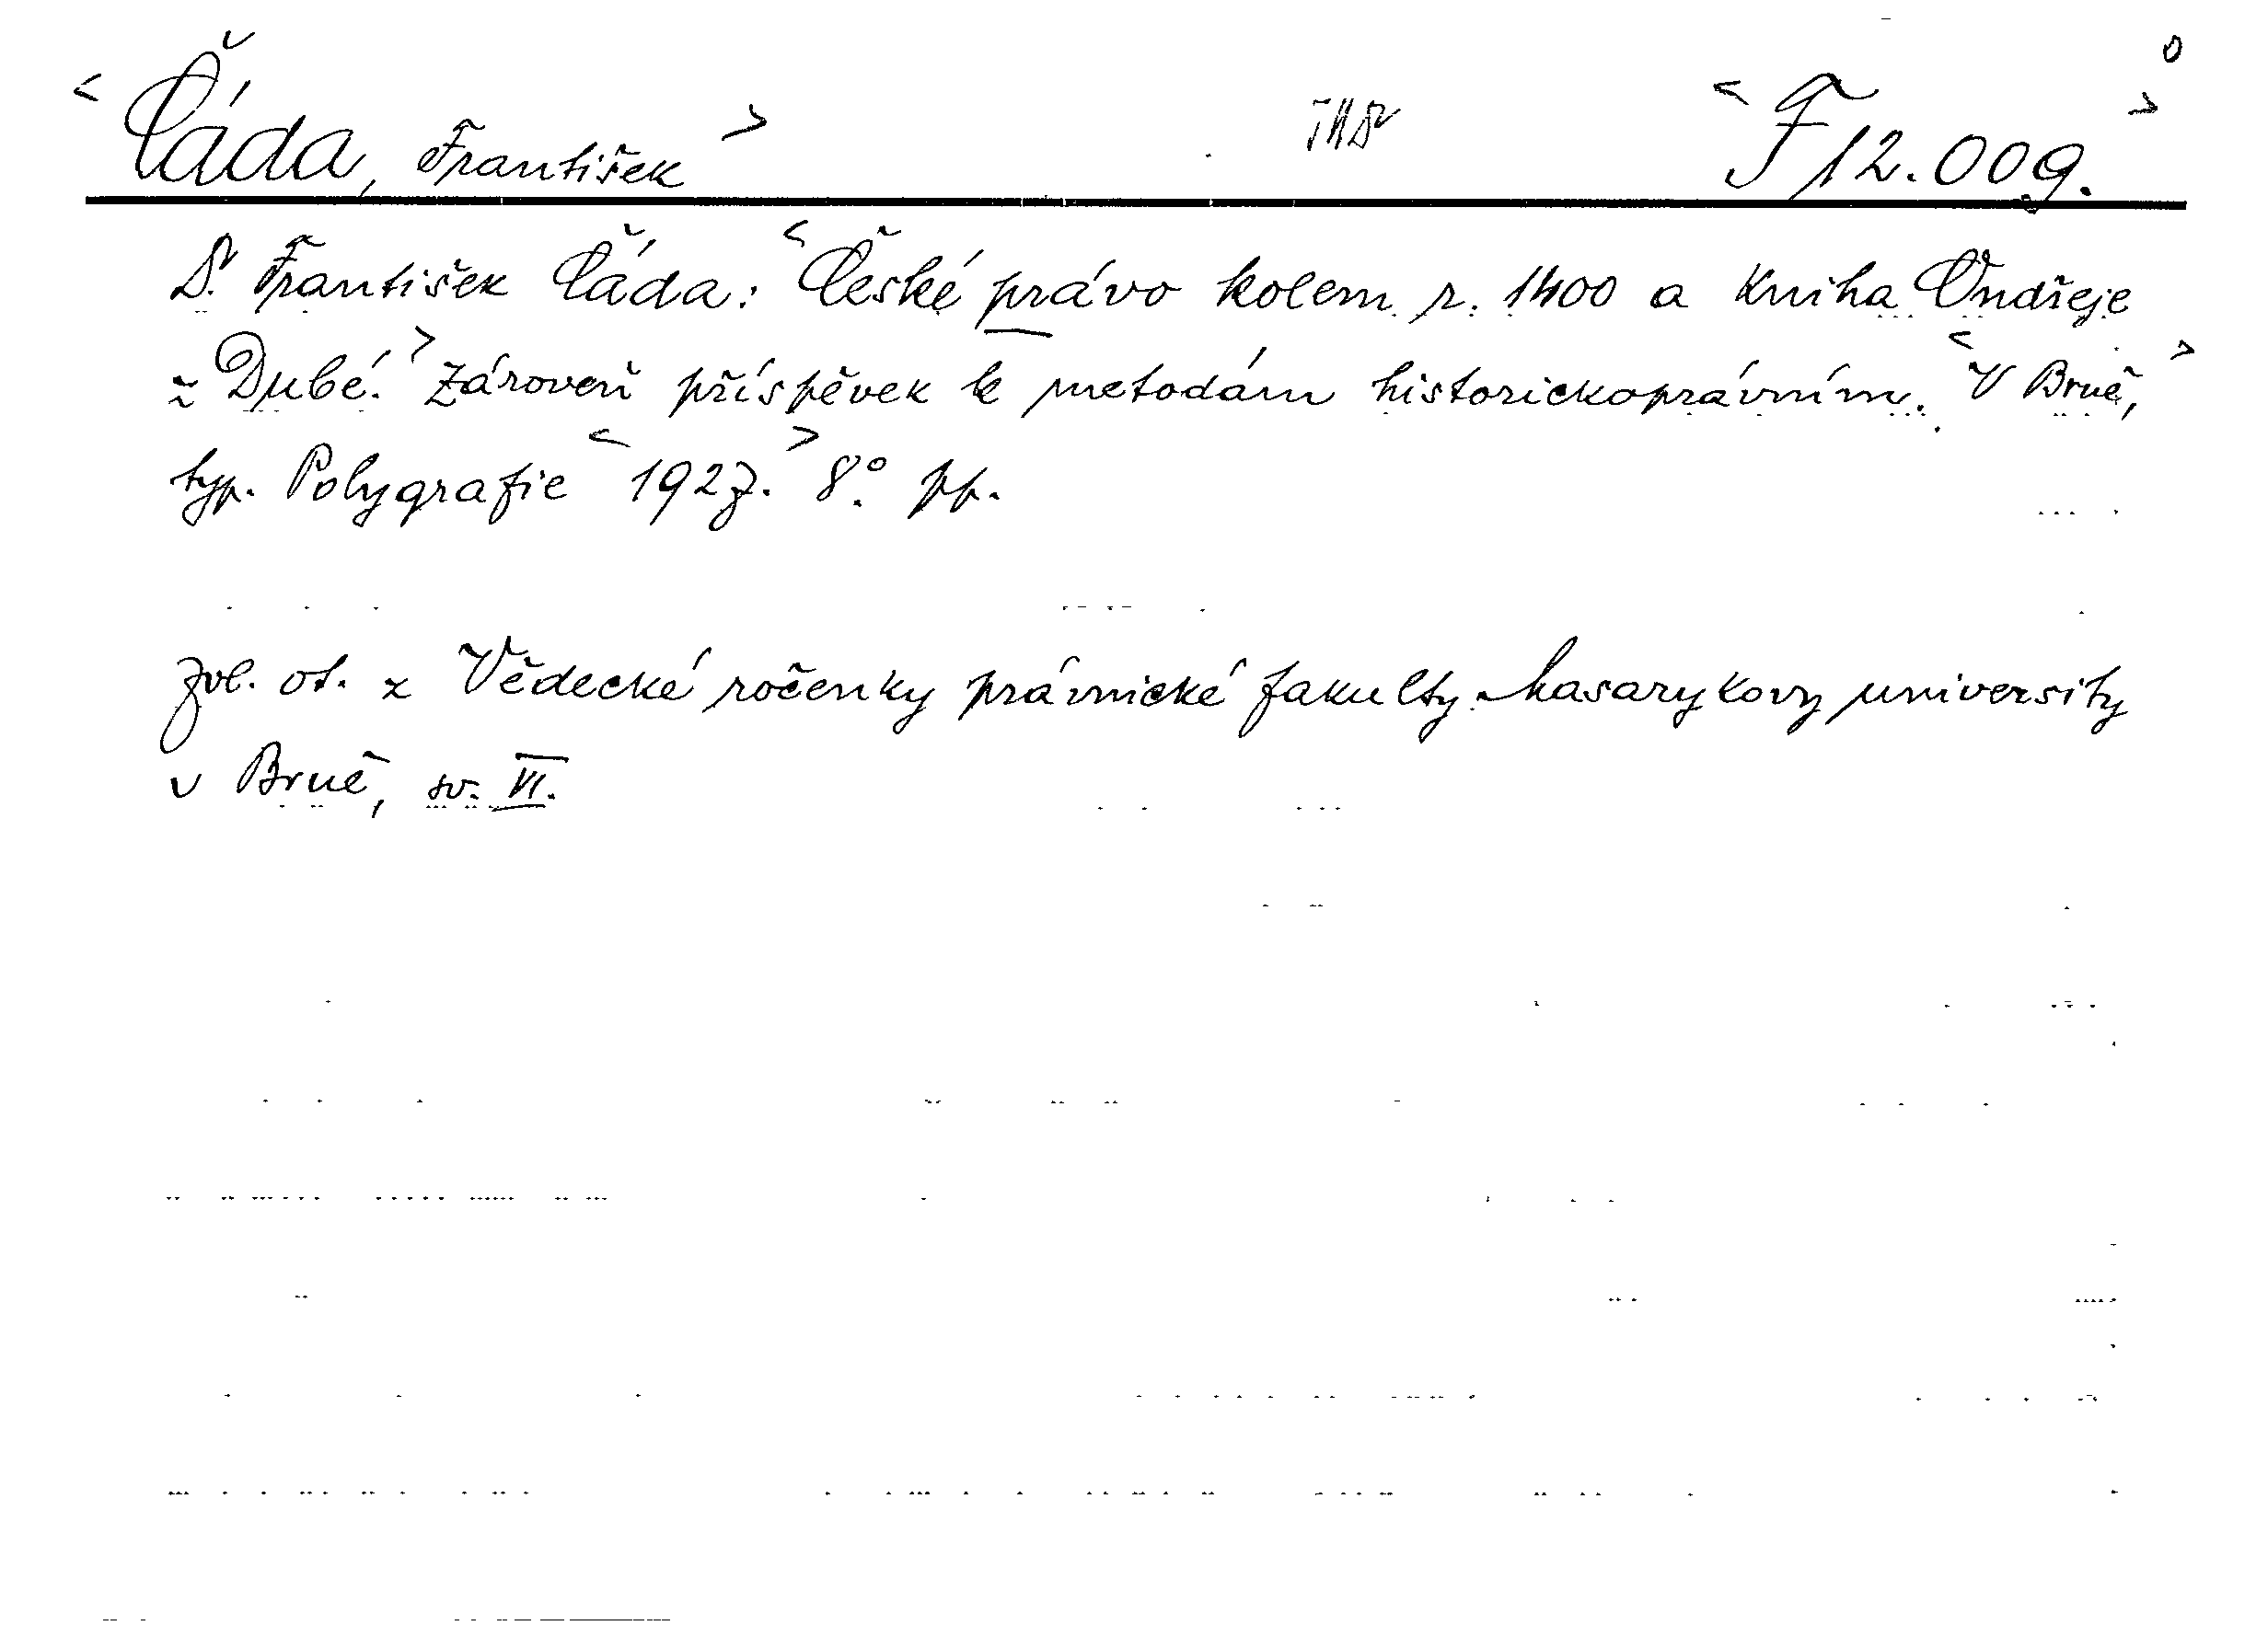 < Čáda, František > < F 12.009. >
Dr. František Čáda: < České právo kolem r. 1400 a kniha Ondřeje
z Dubé. > Zároveň příspěvek k metodám historickoprávním. < V Brně, >
typ. Polygrafie < 1927. > 8°. pp.
zvl. ot. z Vědecké ročenky právnické fakulty Masarykovy university
v Brně, sv. VI.